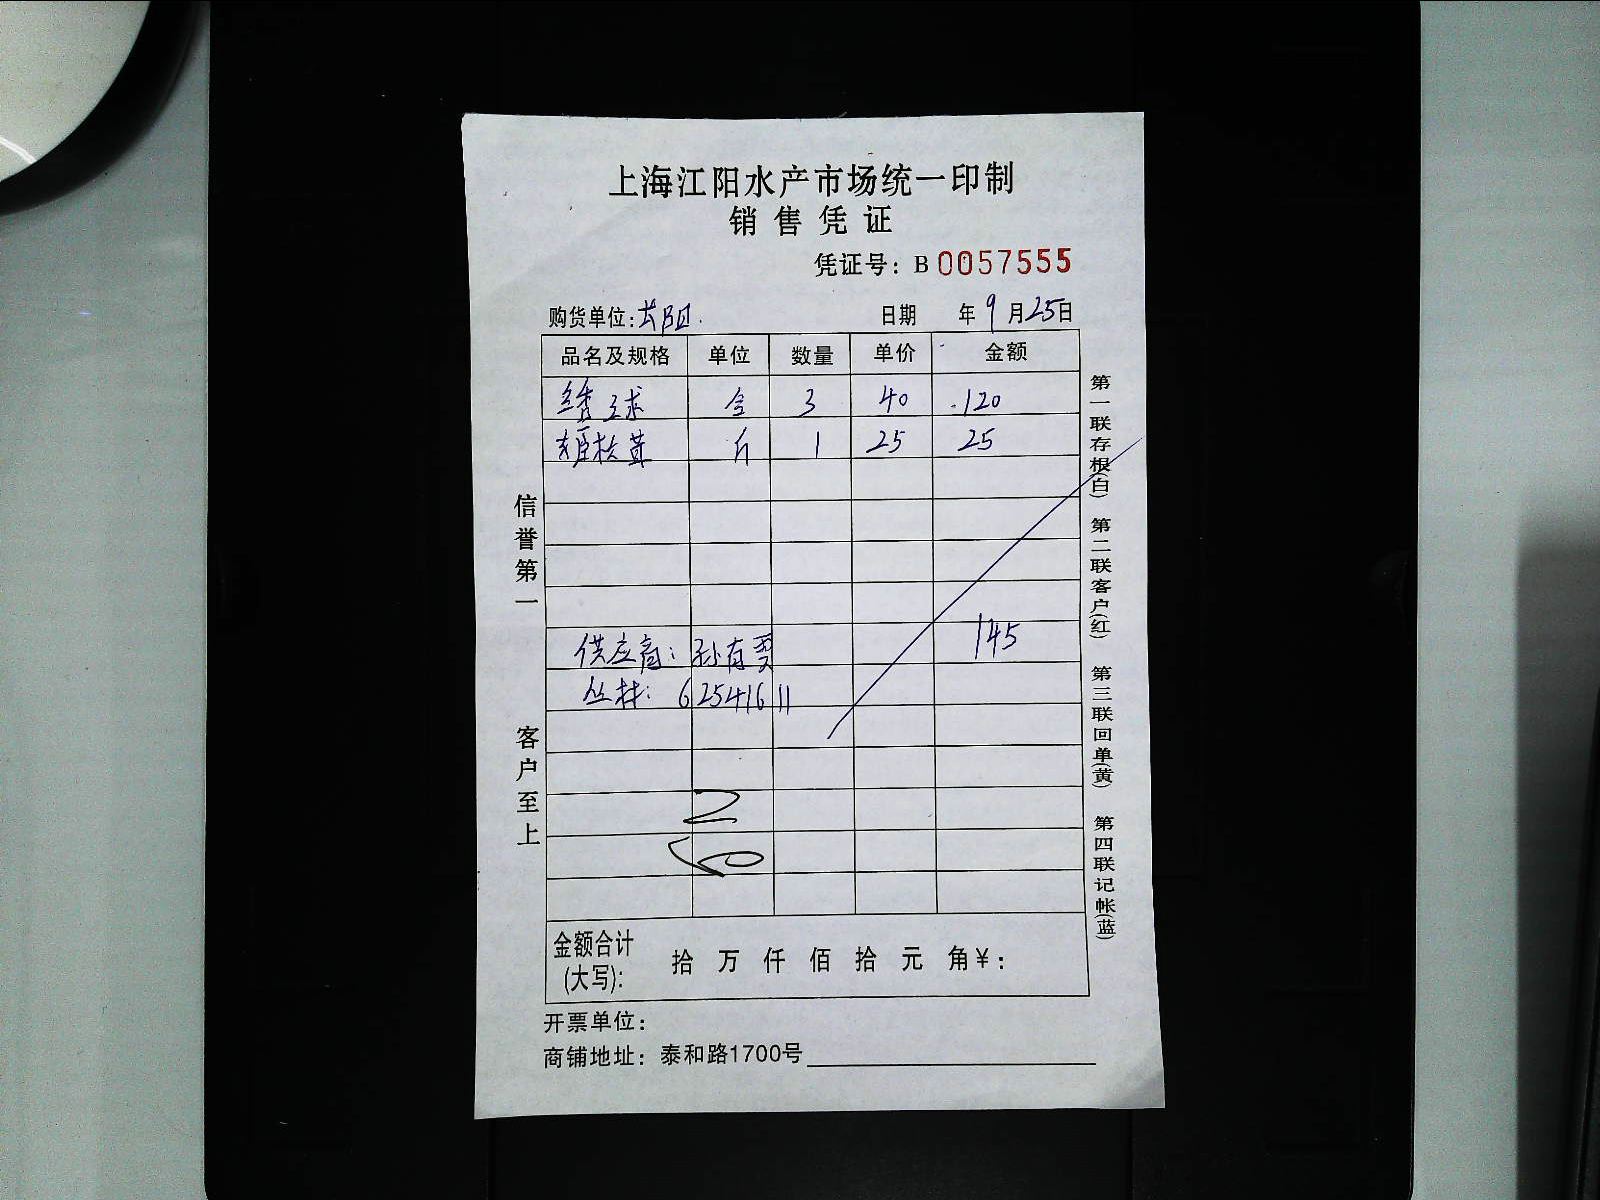 上海江阳水产市场统一印制
销售凭证
凭证号：B 0057555
购货单位: 日期 年 9 月 25 日
品名及规格 单位 数量 单价 金额
绣球 3 40 120
姬松茸 斤 1 25 25
145
供应商：孙有
丛林：62541611
信誉第一
客户至上
第一联存根(白) 第二联客户(红) 第三联回单(黄) 第四联记帐(蓝)
金额合计(大写): 拾 万 仟 佰 拾 元 角 ¥：
开票单位：
商铺地址：泰和路1700号